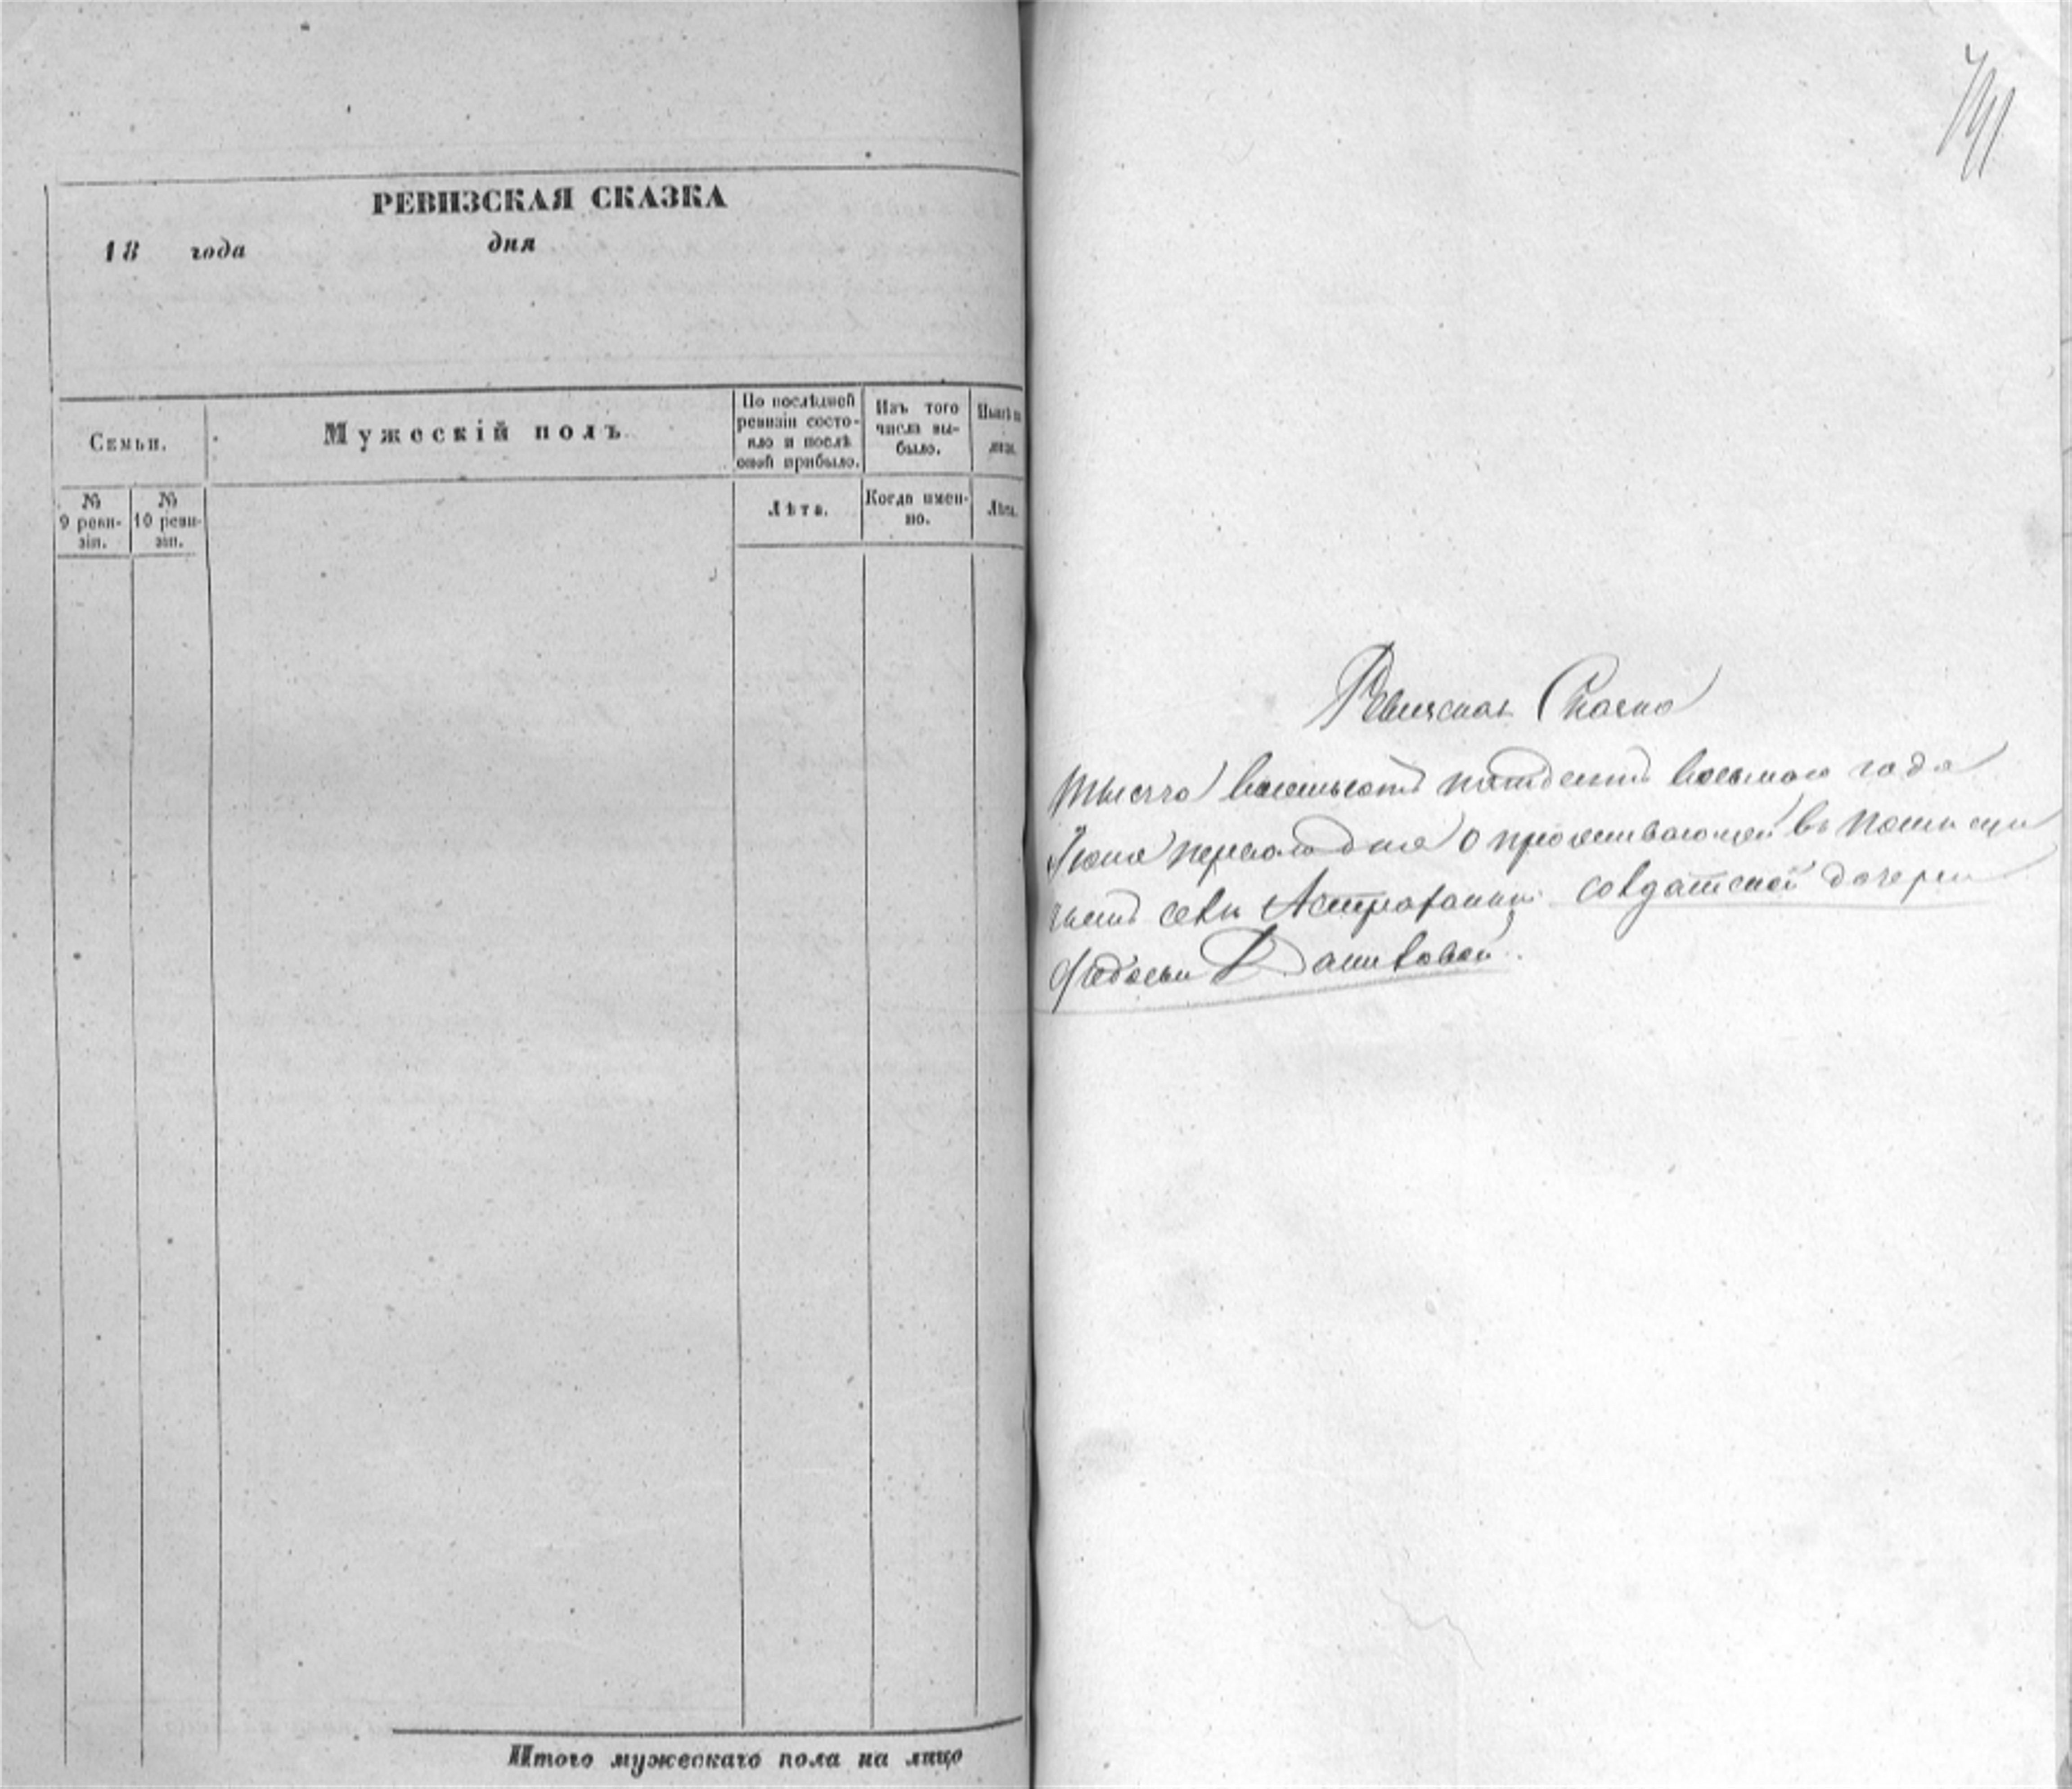 РЕВИЗСКАЯ СКАЗКА
18 года дня
Семьи.
Мужескій полъ.
По послѣдней ревизіи состо-
яло и послѣ
оной прибыло.
Изъ того
числа вы-
было.
№
9 реви-
зіи.
№
10 реви-
зіи.
Лѣта.
Когда имен-
но.
Лѣта.
Итого мужескаго пола на лицо
Ревизская Сказка
Тысяча восемьсотъ пятдесятъ восьмаго года
Іюня перваго дня о проживающей въ помѣщи
чьемъ селѣ солдатской дочери
Федосьи Даниловой.